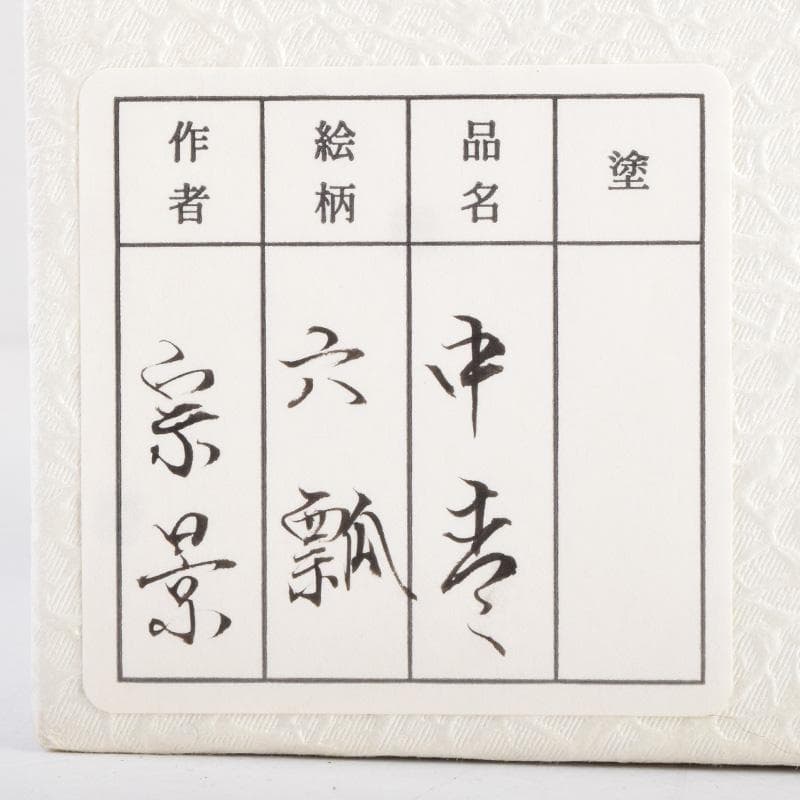 塗
品名
中棗
絵柄
六瓢
作者
宗景